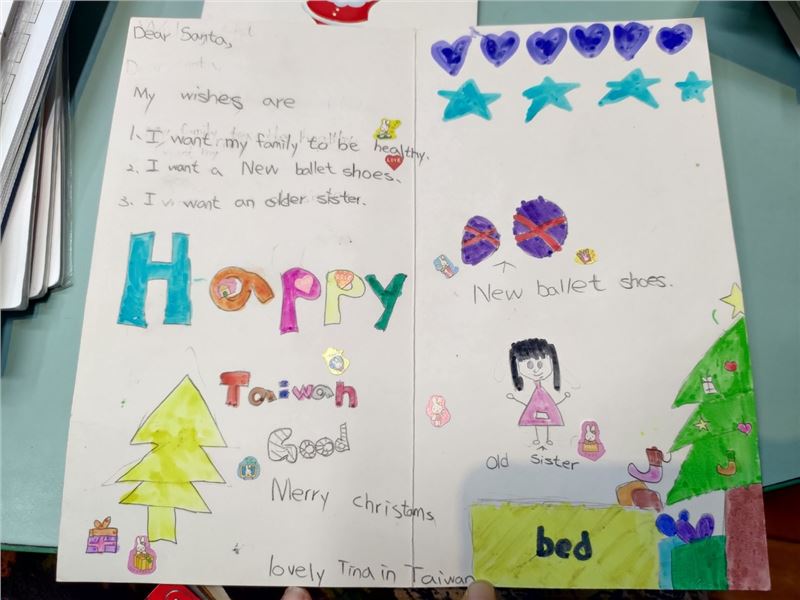 Dear Santa,
My wishes are
1. I want my family to be healthy.
LOVE
2. I want a New ballet shoes.
3. I want an older sister.
Happy
Taiwan
Good
Merry christams
lovely Tina in Taiwan
New ballet shoes.
Old sister
bed